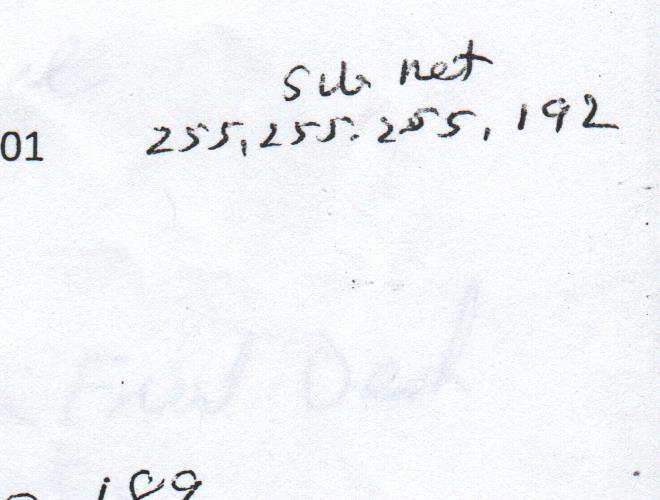 Sub net
01 255.255.255.192
Front Desk
189